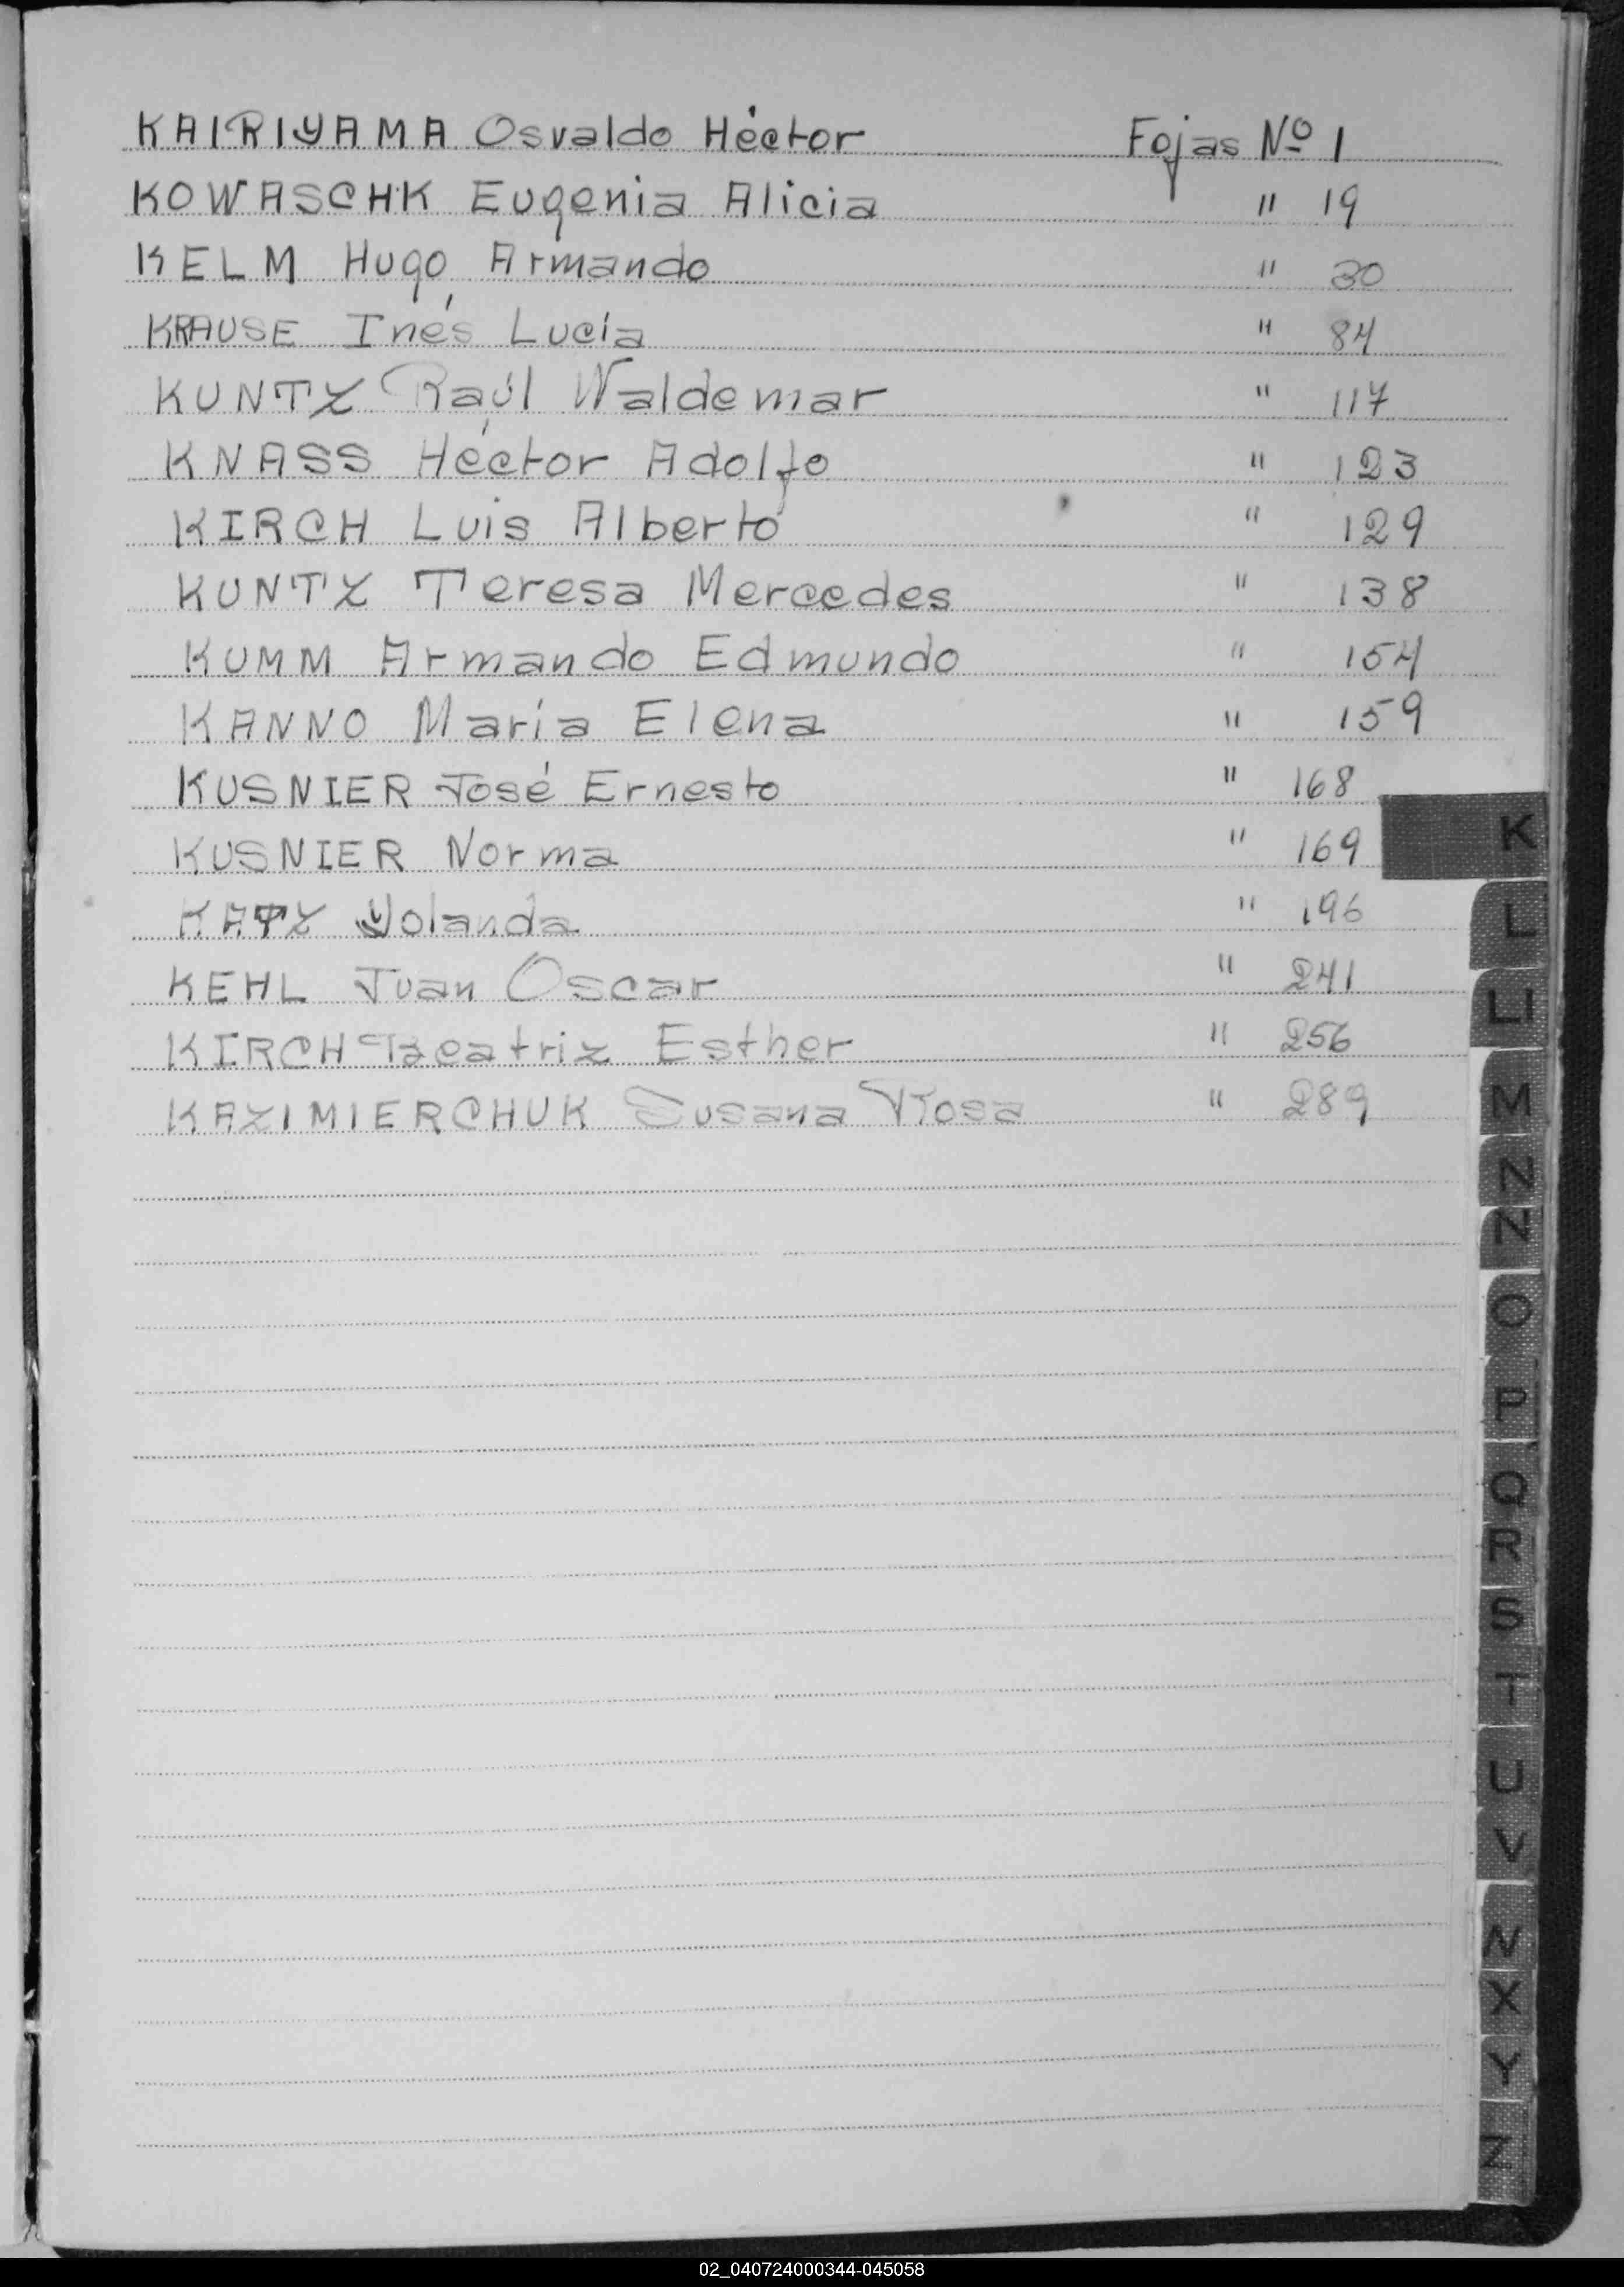 KAIRIYAMA Osvaldo Héctor Fojas Nº 1
KOWASCHK Eugenia Alicia " 19
KELM Hugo Armando " 30
KRAUSE Inés Lucía " 84
KUNTZ Raúl Waldemar " 117
KNASS Héctor Adolfo " 123
KIRCH Luis Alberto " 129
KUNTZ Teresa Mercedes " 138
KUMM Armando Edmundo " 154
KANNO María Elena " 159
KUSNIER José Ernesto " 168
KUSNIER Norma " 169
KATZ Yolanda " 196
KEHL Juan Oscar " 241
KIRCH Beatriz Esther " 256
KAZIMIERCHUK Susana Rosa " 289
K
L
LL
M
N
Ñ
O
P
Q
R
S
T
U
V
W
X
Y
Z
02_040724000344-045058